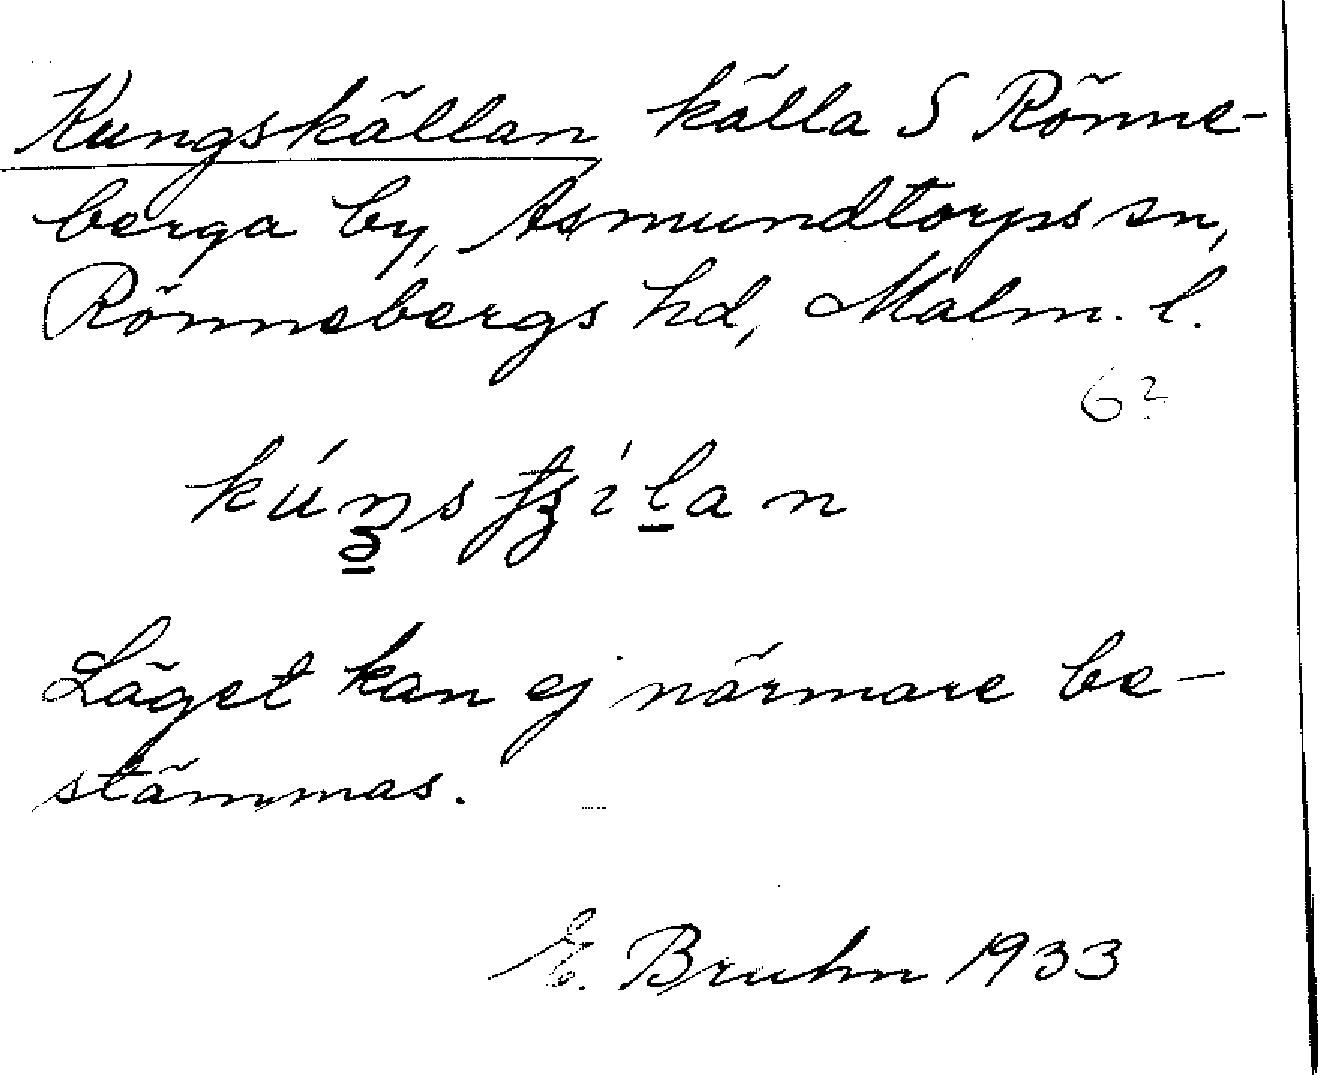 Kungskällan källa S Rönne-
berga by, Asmundtorps sn,
Rönnebergs hd, Malm. l.
6?
Läget kan ej närmare be-
stämmas.
E. Bruhn 1933